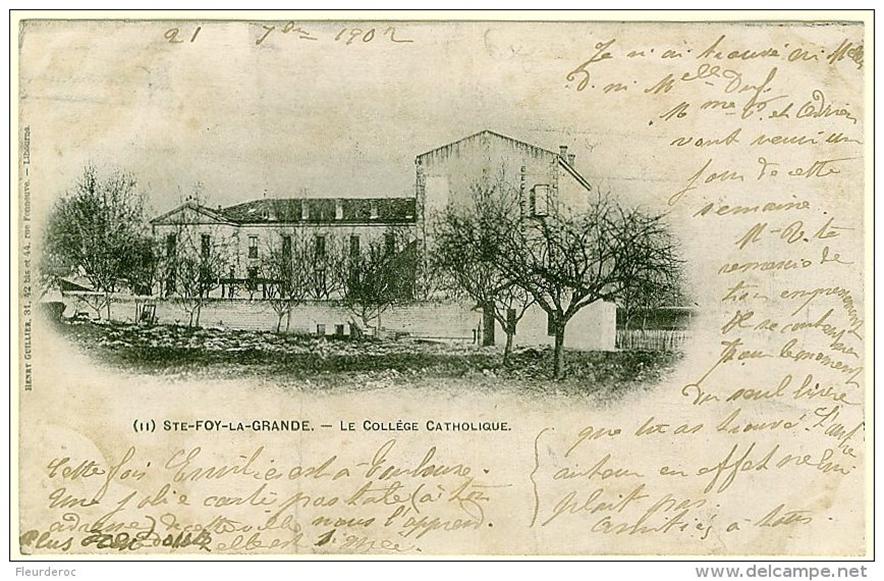 21 7bre 1902
Je n'ai trouvé ni Melle
D. ni Melle Duf.
Mme V. et Adrien
vont venir un
jour de cette
semaine.
M. D. te
remercie de
ton empressement
Il se contentera
pour le moment
du seul livre
que tu as trouvé. L'autre
auteur en effet ne lui
plaît pas.
Amitiés à tous.
HENRY GUILLIER, 31, 42 bis et 44, rue Fonneuve. — Libourne
(11) STE-FOY-LA-GRANDE. — LE COLLÈGE CATHOLIQUE.
Cette fois Emilie est à Toulouse.
Une jolie carte postale (à ton
adresse) de cette ville nous l'apprend.
Plus de doute elle est
Fleurderoc
http://www.delcampe.net